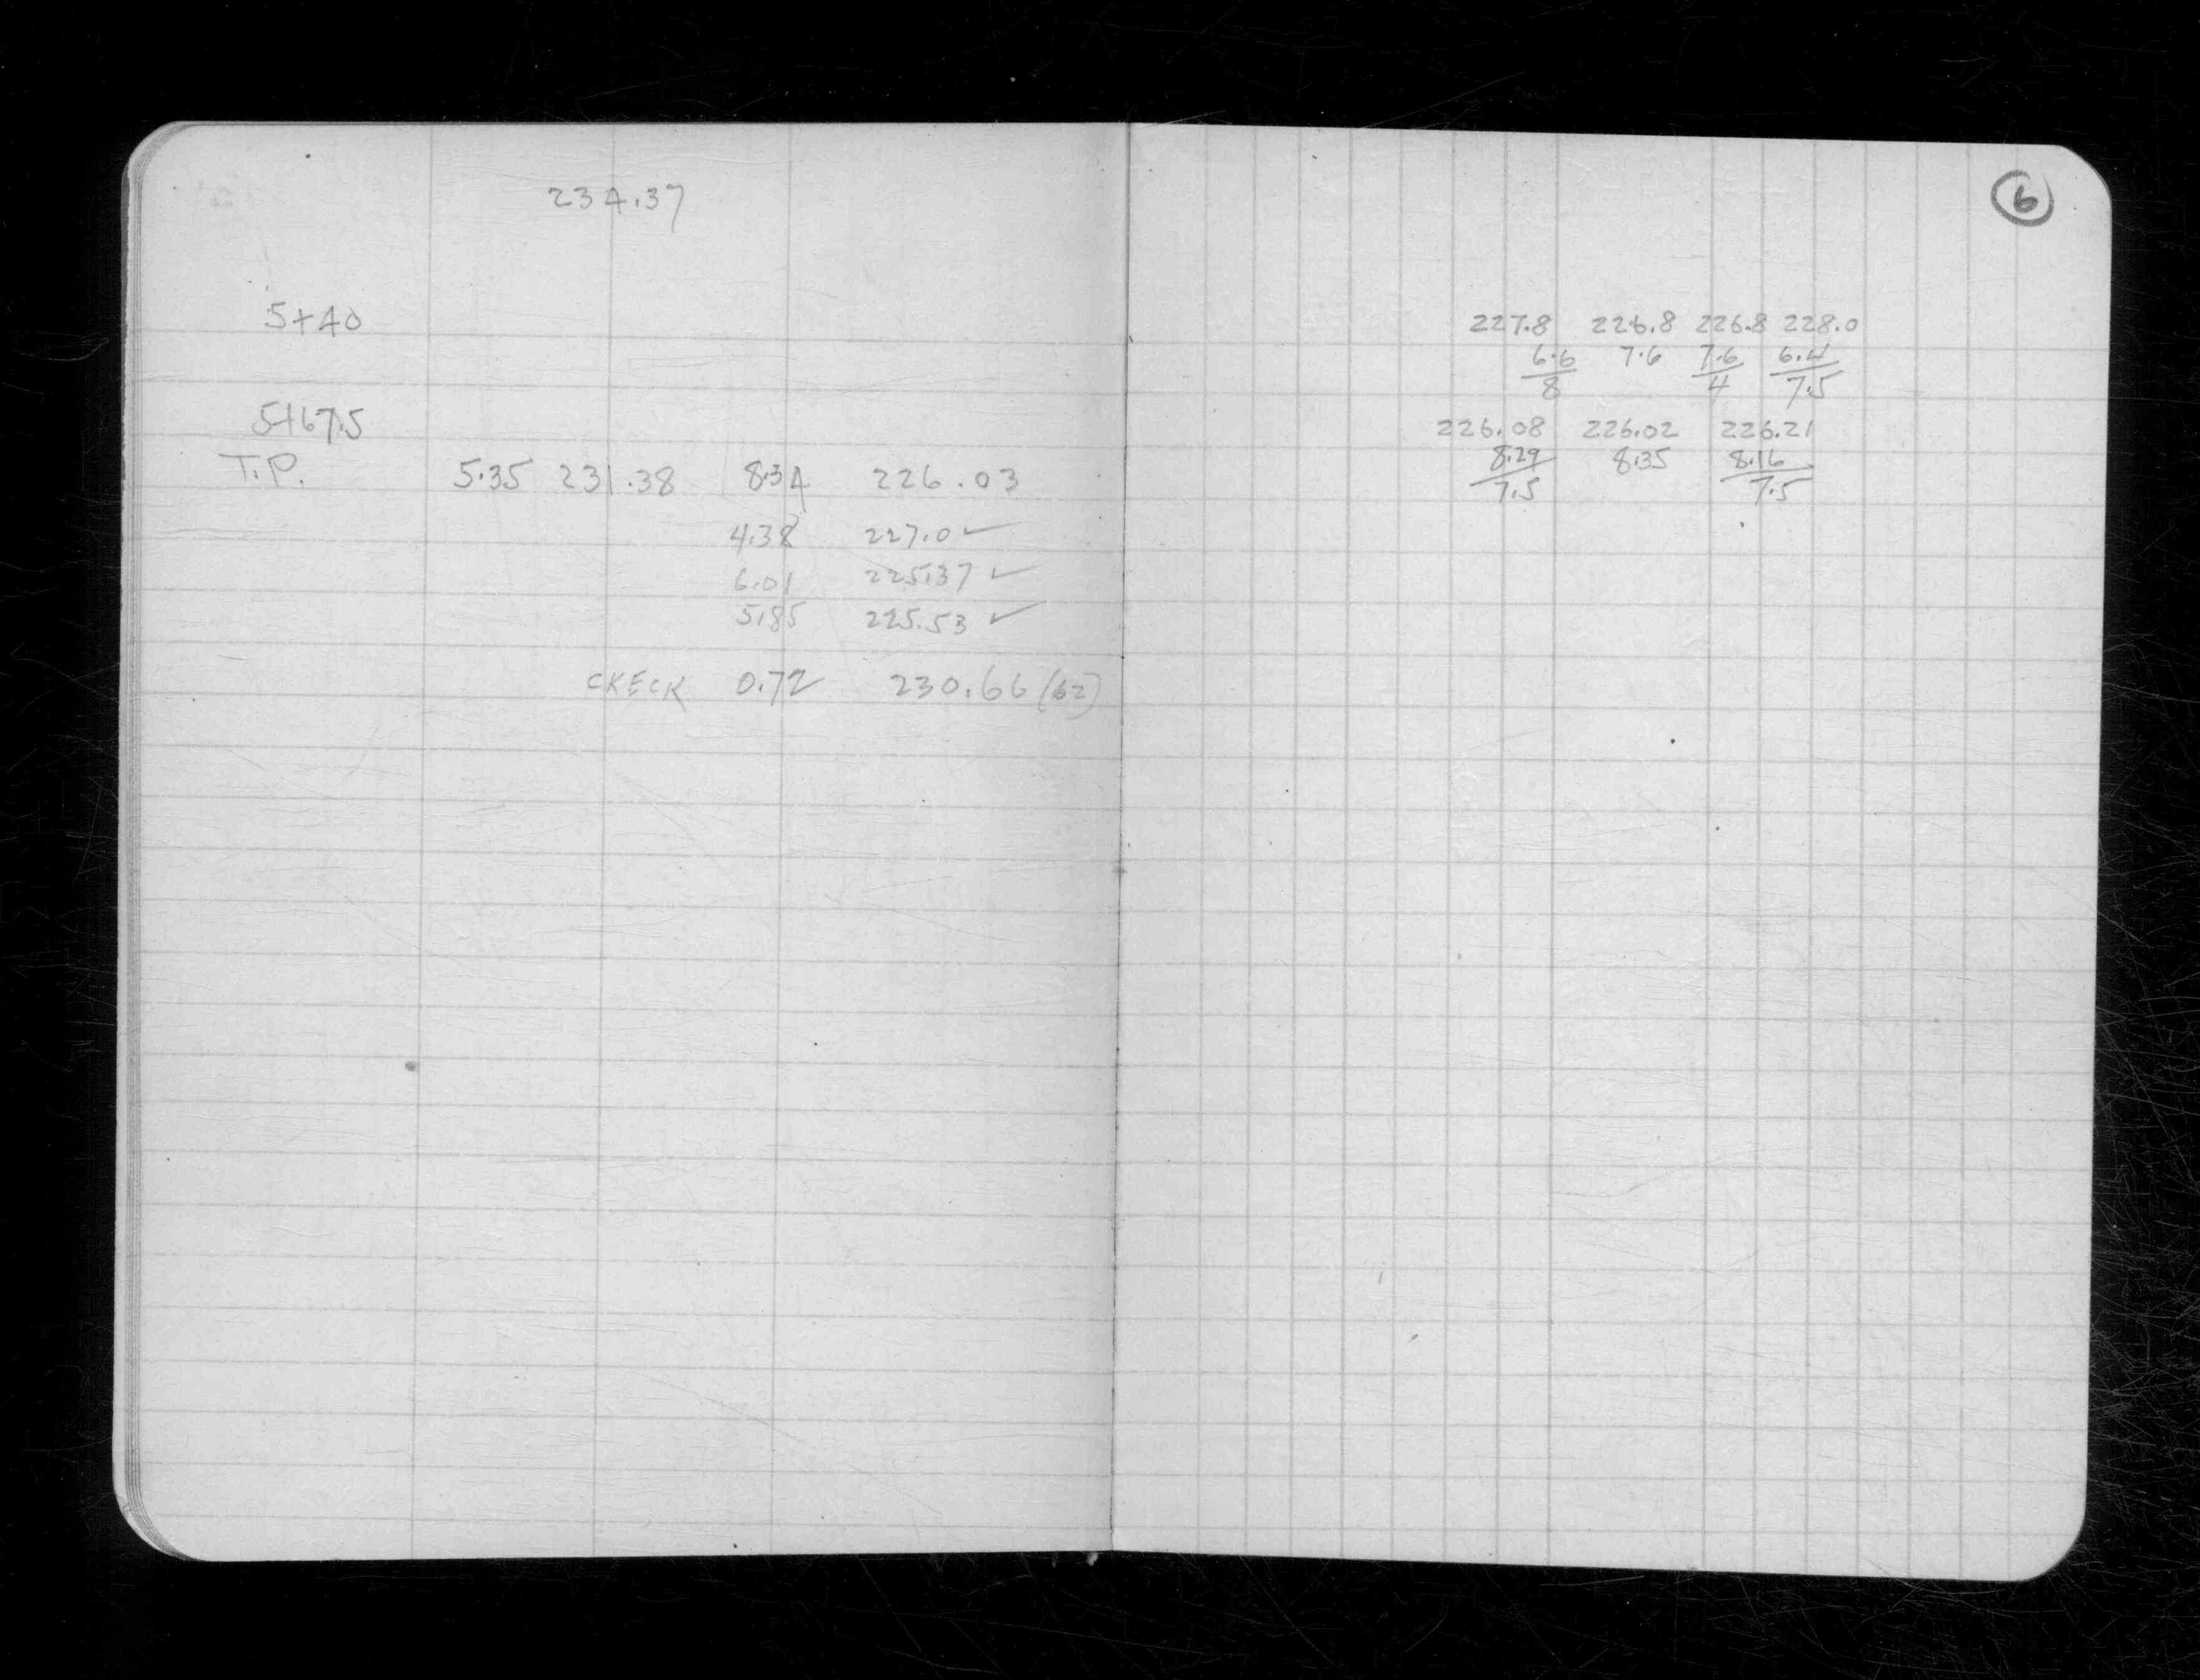 234.37
5+40
5+67.5
T.P. 5.35 231.38 8.34 226.03
4.38 227.0 ✓
6.01 225.37 ✓
5.85 225.53 ✓
CKECK 0.72 230.66 (62)
6
227.8 226.8 226.8 228.0
6.6 7.6 7.6 6.4
8 4 7.5
226.08 226.02 226.21
8.29 8.35 8.16
7.5 7.5